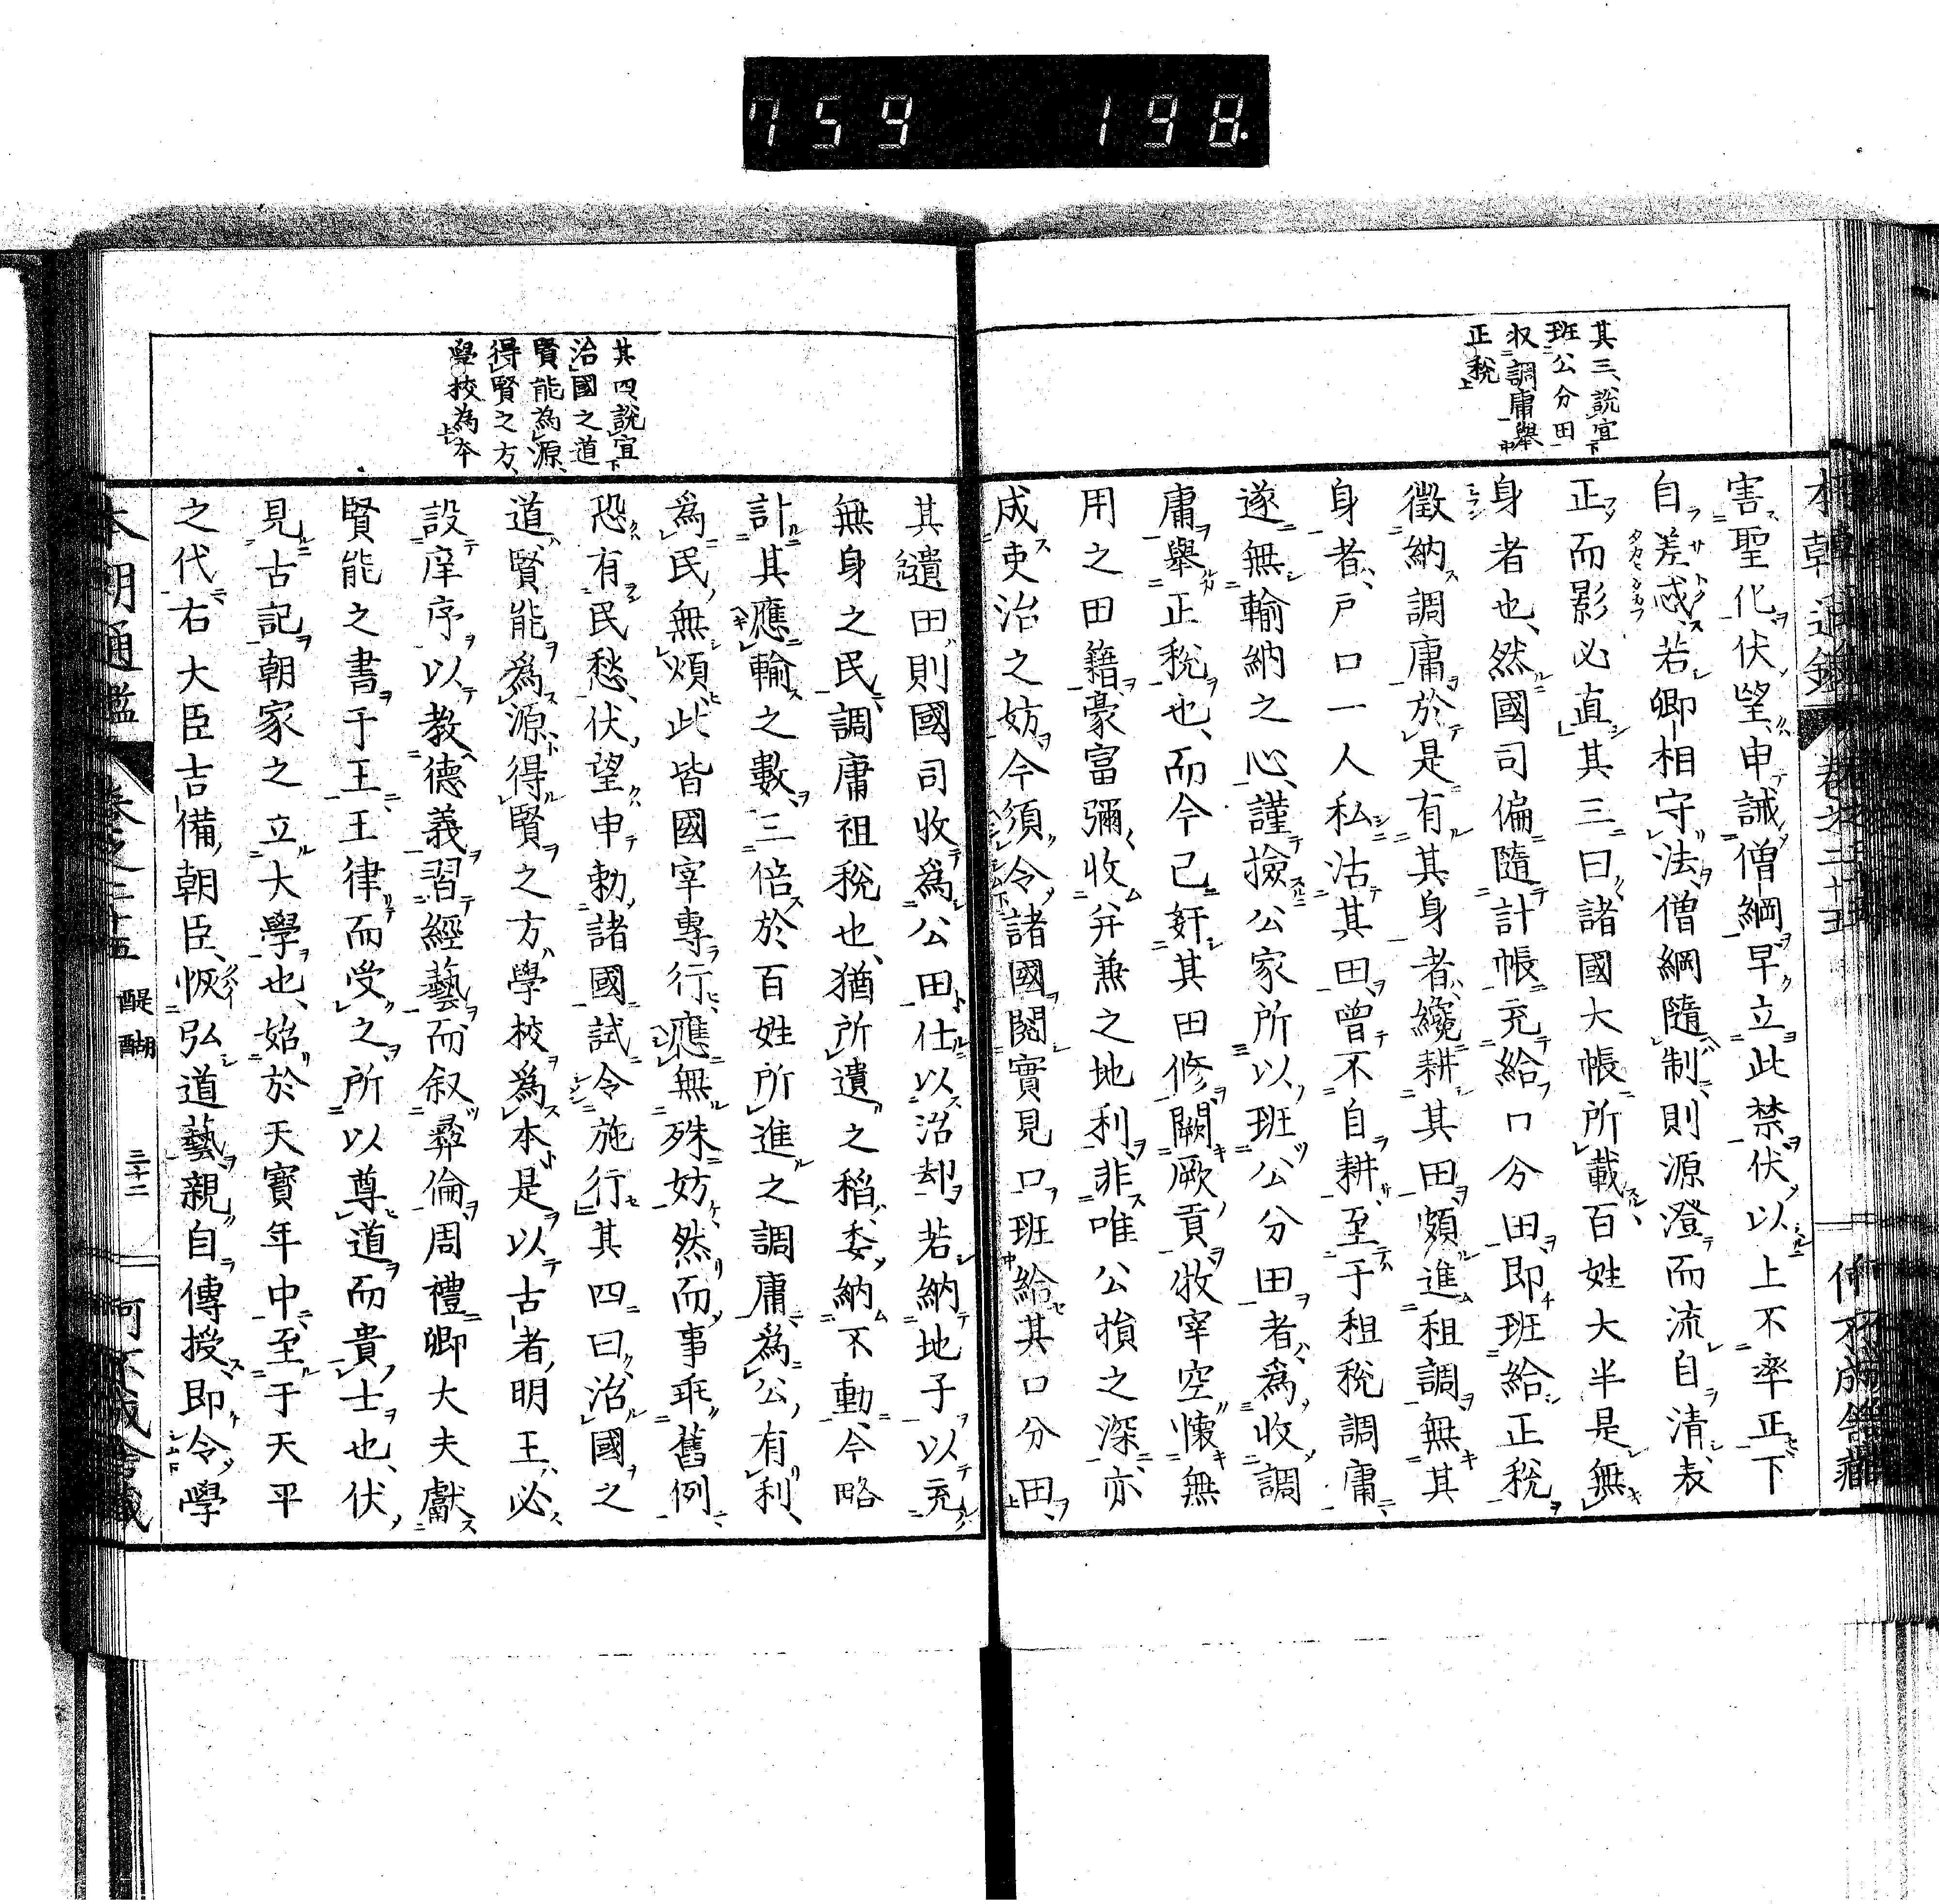 759 198.
其三、說宜
班公分田
収調庸舉
正稅
害聖化伏望、申誡僧綱早立此禁伏以上不率正下
自差惑、若卿相守法、僧綱隨制、則源澄而流自清、表
正而影必直其三曰諸國大帳所載百姓大半是無
身者也、然國司偏隨計帳充給口分田即班給正稅
徵納調庸於是有其身者、纔耕其田頗進租調無其
身者、戸口一人私沽其田曾不自耕至于租稅調庸
遂無輸納之心、謹撿公家所以班公分田者、爲收調
庸舉正稅也、而今已奸其田修闕厥貢牧宰空懷無
用之田籍豪富彌收并兼之地利非唯公損之深亦
成吏治之妨今須令諸國閱實見口班給其口分田
其四、說宜
治國之道
賢能為源、
得賢之方、
學校為本
其遺田則國司收爲公田仕以沽却若納地子以充
無身之民、調庸祖稅也、猶所遺之稻、委納不動、今略
計其應輸之數、三倍於百姓所進之調庸爲公有利、
爲民無煩此皆國宰專行、應無殊妨然而事乖舊例
恐有民愁、伏望申勅諸國試令施行其四曰、治國之
道、賢能爲源、得賢之方、學校爲本是以古者明王、必
設庠序以教德義習經藝而叙彜倫周禮卿大夫獻
賢能之書于王王律而受之所以尊道而貴士也、伏
見古記朝家之立大學也、始於天寶年中至于天平
之代右大臣吉備朝臣、恢弘道藝親自傳授即令學
本朝通鑑 卷之二十五 醍醐 三十二